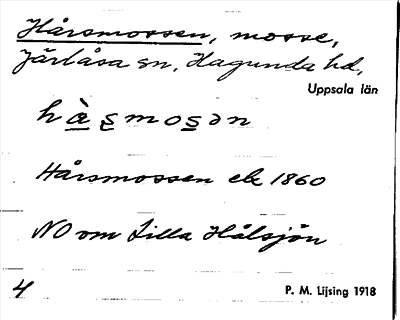 Hårsmossen, mosse,
Järlåsa sn, Hagunda hd,
Uppsala län
hàs̠mos̠ən
Hårsmossen ek 1860
NO om Lilla Hålsjön
4
P. M. Lijsing 1918